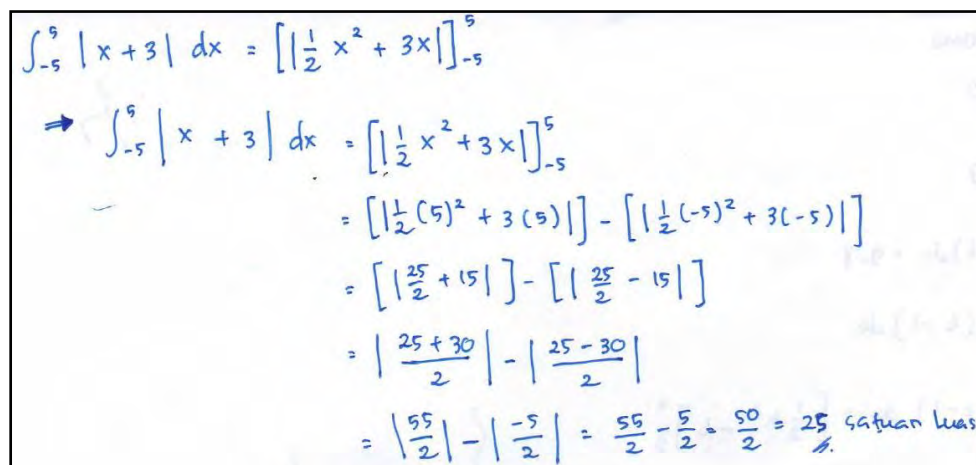 ∫₋₅⁵ |x + 3| dx = [|½ x² + 3x|]₋₅⁵
⇒ ∫₋₅⁵ |x + 3| dx = [|½ x² + 3x|]₋₅⁵
= [|½ (5)² + 3(5)|] - [|½ (-5)² + 3(-5)|]
= [|25/2 + 15|] - [|25/2 - 15|]
= |(25 + 30)/2| - |(25 - 30)/2|
= |55/2| - |-5/2| = 55/2 - 5/2 = 50/2 = 25 satuan luas